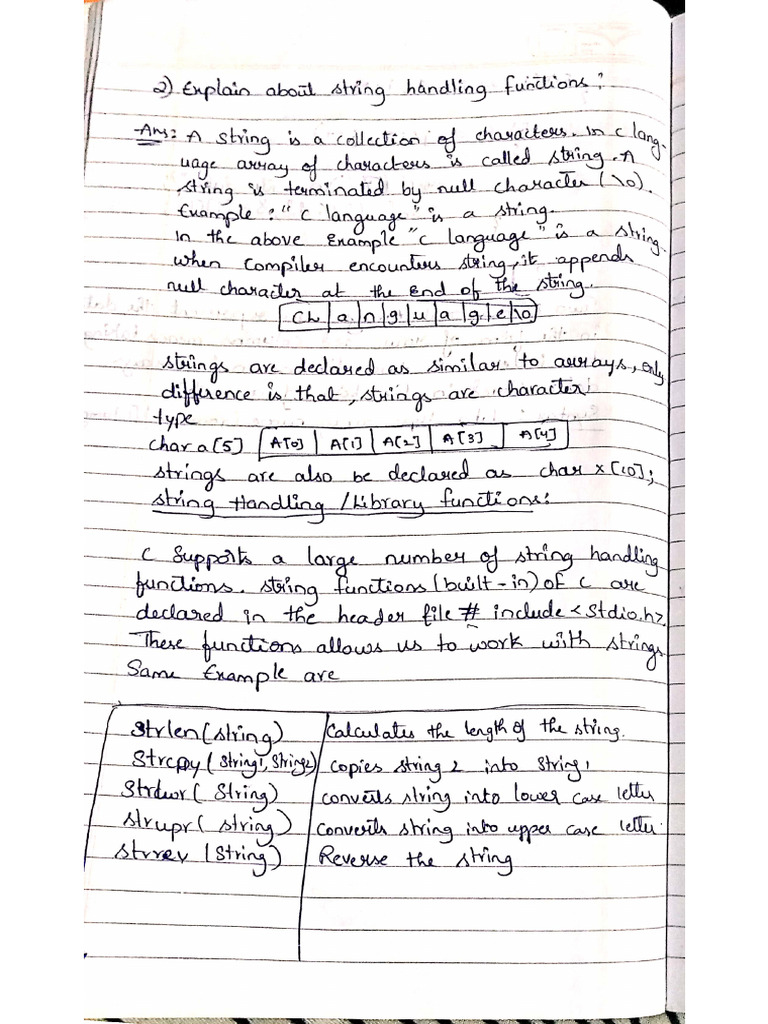 2) Explain about string handling functions:
Ans: A string is a collection of characters. In C lang-
uage array of characters is called string. A
string is terminated by null character (\0).
Example: "C language" is a string.
In the above Example "C language" is a string.
when Compiler encounters string, it appends
null character at the End of the string.
CL a n g u a g e \0
strings are declared as similar to arrays, only
difference is that, strings are character
type
char a[5] A[0] A[1] A[2] A[3] A[4]
strings are also be declared as char x[10];
string Handling / Library functions:
C Supports a large number of string handling
functions. string functions (built-in) of C are
declared in the header file # include <Stdio.h>.
These functions allows us to work with strings.
Same Example are
Strlen(string) Calculates the length of the string.
Strcpy (String1, String2) copies string 2 into String 1
Strdwr (String) converts string into lower case letter
strupr (string) converts string into upper case letter.
strrev (String) Reverse the string